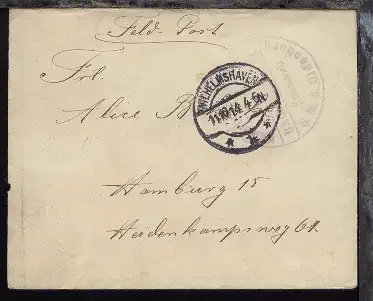 Feld-Post
Frl.
Alice B
WILHELMSHAVEN
11.10.14. 4-5N.
Hamburg 15
Heidenkampsweg 61.